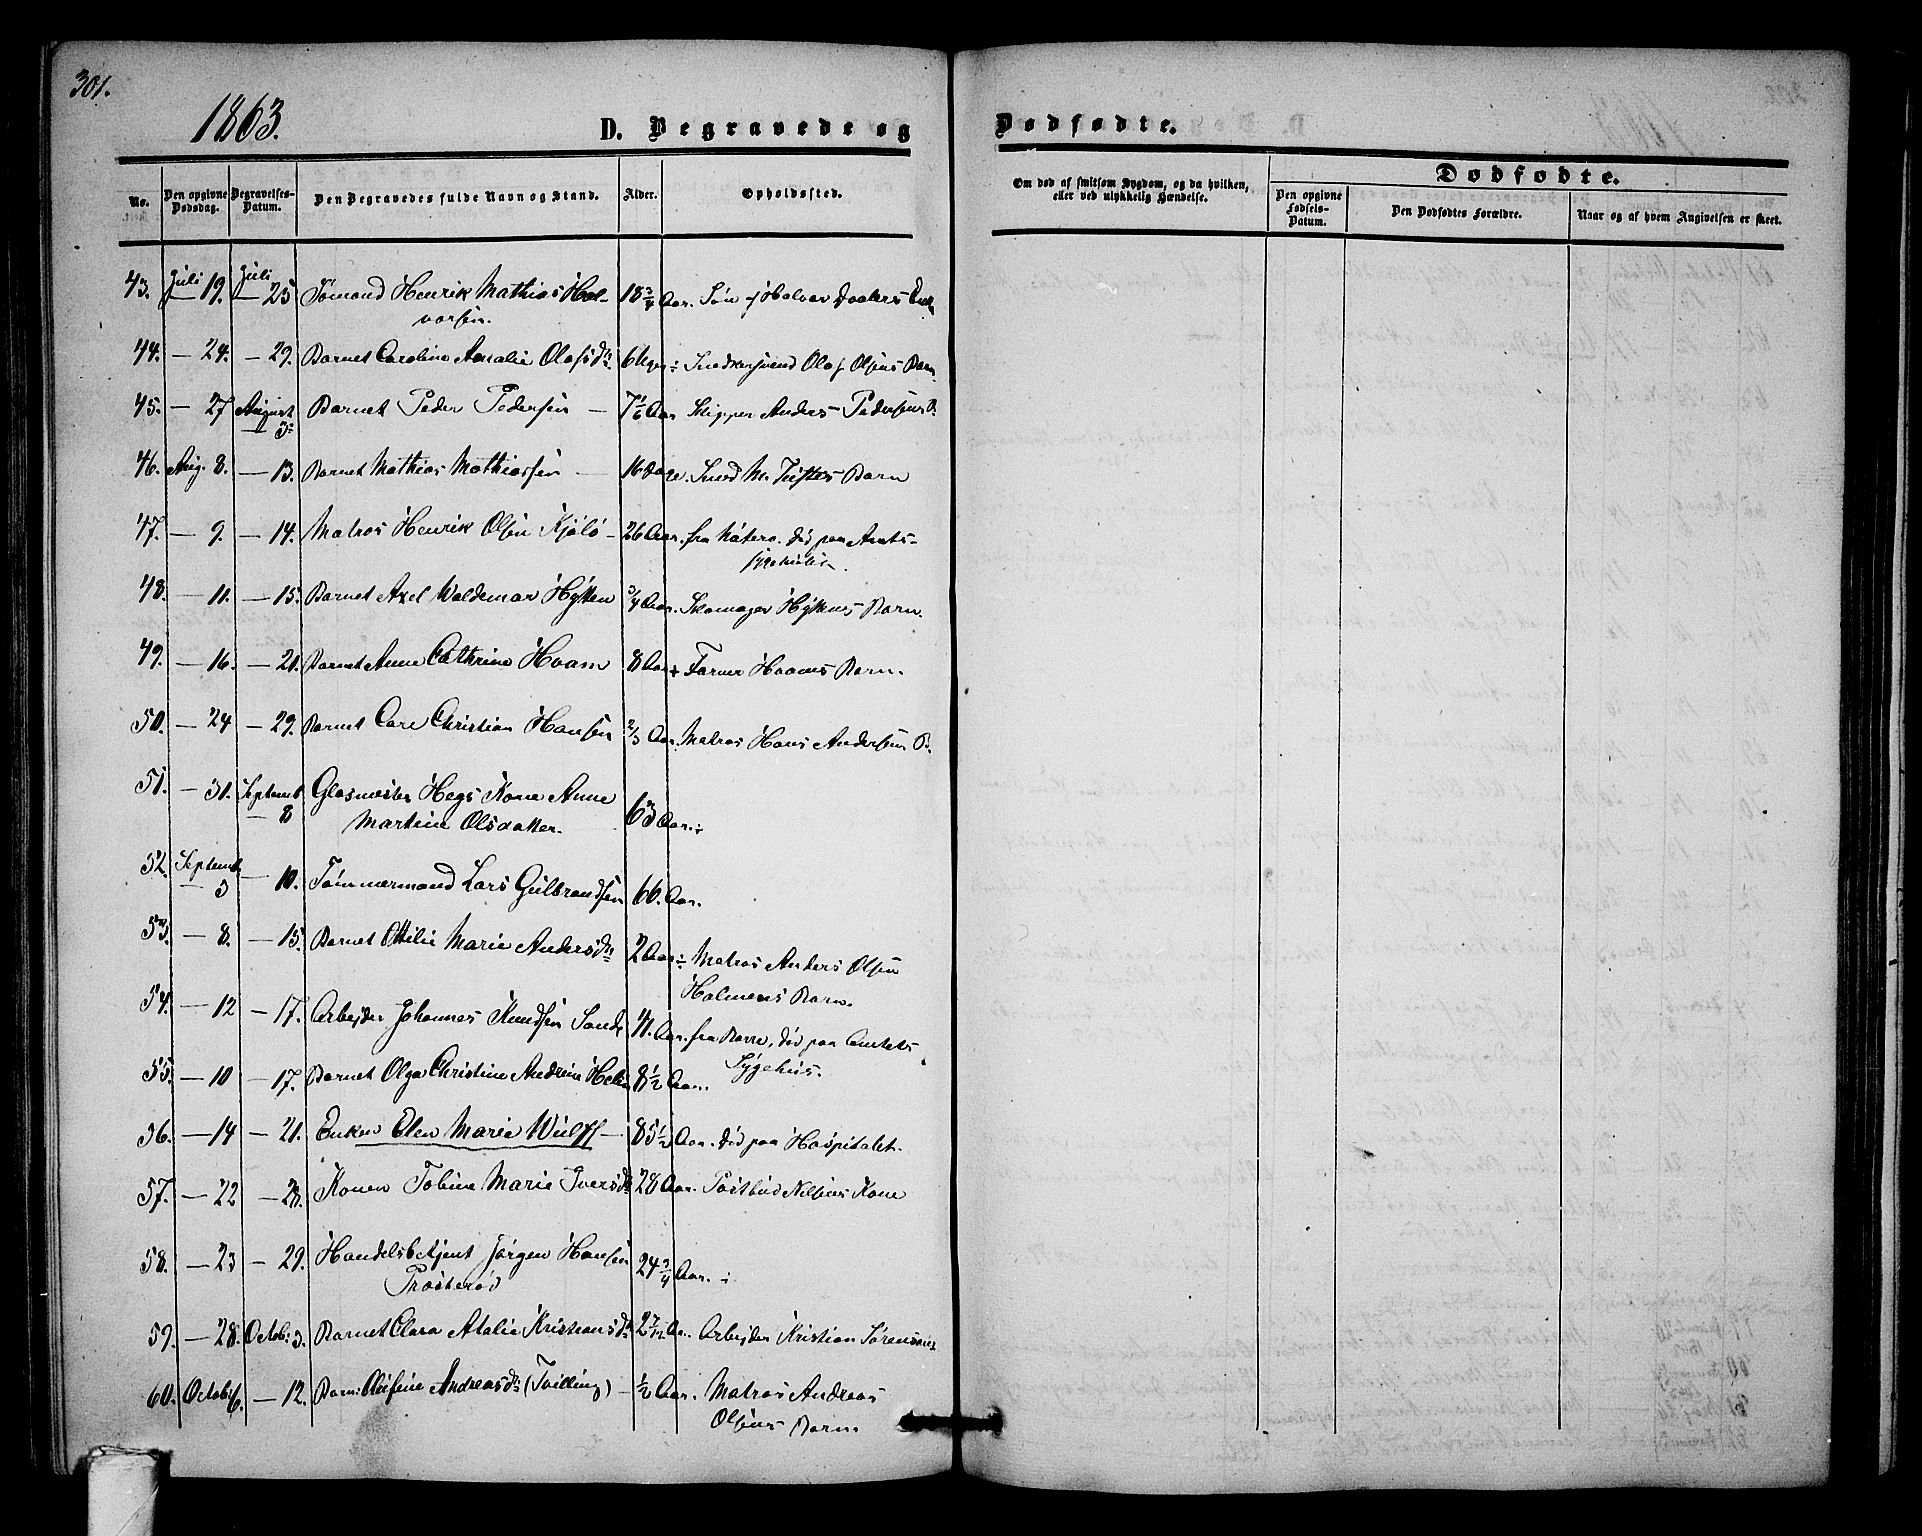 301.
1863.
D. Begravede og
Dødfødte.
No.
Den opgivne Dødsdag.
Begravelses-Datum.
Den Begravedes fulde Navn og Stand.
Alder.
Opholdssted.
Om død af smitsom Sygdom, og da hvilken, eller ved ulykkelig Hændelse.
Dødfødte.
Den opgivne Fødsels-Datum.
Den Dødfødtes Forældre.
Naar og af hvem Angivelsen er skeet.
43. Juli 19. Juli 25 Sømand Henrik Mathias Hal- 18 3/4 Aar. Søn af Halvor
vorsen.
44. — 24. — 29. Barnet Caroline Amalie Olafsd. 6 Uger Snedkersvend Olaf Olsens Barn
45. — 27 August 3 Barnet Peder Pedersen — 7 1/2 Aar Skipper Anders Pedersens B.
46. Aug. 8. — 13. Barnet Mathias Mathiassen — 16 Dage. Smed M. Tuftes Barn
47. — 9. — 14. Matros Henrik Olsen Kjølø — 26 Aar. fra død paa Amts-
sygehuset.
48. — 11. — 15. Barnet Axel Waldemar Hytten 3/4 Aar. Skomager Hyttens Barn.
49. — 16. — 21. Barnet Anne Cathrine Hvam 8 Aar Farver Hvams Barn.
50. — 24 — 29. Barnet Carl Christian Hansen 2/3 Aar. Matros Hans Andersens B.
51. — 31. Septemb. 8 Glasmester Hegs Kone Anne 63 Aar.
Martine Olsdatter.
52. Septemb. 3 — 10. Tømmermand Lars Gulbrandsen 66. Aar.
53. — 8. — 15. Barnet Ottilie Marie Andersd. 2 Aar Matros Anders Olsen
Holmens Barn.
54. — 12 — 17. Arbejder Johannes Knudsen Sande 41. Aar. fra Borre, død paa Amtets
Sygehus.
55. — 10 — 17. Barnet Olga Christine Andrine 8 1/2 Aar.
56. — 14 — 21. Enken Elen Marie Wulff — 85 1/2 Aar. død paa Hospitalet.
57. — 22 — 28. Konen Tobine Marie Iversd. 28 Aar. Postbud Nilsens Kone
58. — 23 — 29. Handelsbetjent Jørgen Hansen 24 3/4 Aar.
Prosterød
59. — 28. Octob. 3. Barnet Clara Atalie Kristiansd. 2 7/12 Aar. Arbejder Kristian Sørensens
60. Octob. 6. — 12. Barn. Andreasd. (Tvilling) — 1/2 Aar. Matros Andreas
Olsens Barn.